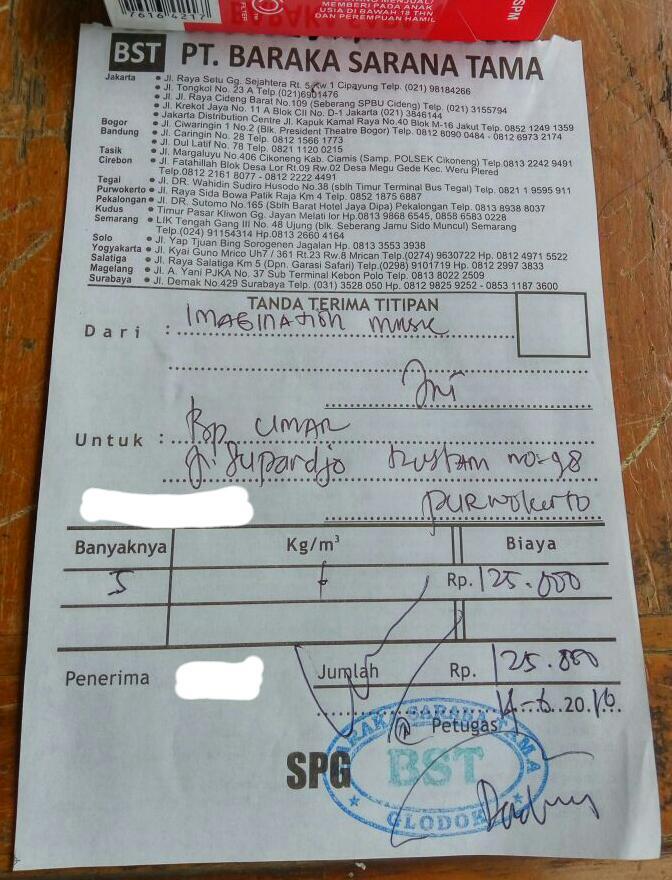 7616 4217
MEMBERI PADA ANAK
USIA DI BAWAH 18 THN
DAN PEREMPUAN HAMIL
SPM
BST PT. BARAKA SARANA TAMA
Jakarta • Jl. Raya Setu Gg. Sejahtera Rt. 5 Rw 1 Cipayung Telp. (021) 98184266
• Jl. Tongkol No. 23 A Telp.(021)6901476
• Jl. Jl. Raya Cideng Barat No.109 (Seberang SPBU Cideng) Telp. (021) 3155794
• Jl. Krekot Jaya No. 11 A Blok CII No. D-1 Jakarta (021) 3846144
• Jakarta Distribution Centre Jl. Kapuk Kamal Raya No.40 Blok M-16 Jakut Telp. 0852 1249 1359
Bogor • Jl. Ciwaringin 1 No.2 (Blk. President Theatre Bogor) Telp. 0812 8090 0484 - 0812 6973 2174
Bandung • Jl. Caringin No. 28 Telp. 0812 1566 1773
• Jl. Dul Latif No. 78 Telp. 0821 1120 0215
Tasik • Jl. Margaluyu No.406 Cikoneng Kab. Ciamis (Samp. POLSEK Cikoneng) Telp.0813 2242 9491
Cirebon • Jl. Fatahillah Blok Desa Lor Rt.09 Rw.02 Desa Megu Gede Kec. Weru Plered
Telp.0812 2161 8077 - 0812 2222 4491
Tegal • Jl. DR. Wahidin Sudiro Husodo No.38 (sblh Timur Terminal Bus Tegal) Telp. 0821 1 9595 911
Purwokerto • Jl. Raya Sida Bowa Patik Raja Km 4 Telp. 0852 1875 6887
Pekalongan • Jl. DR. Sutomo No.165 (Sblh Barat Hotel Jaya Dipa) Pekalongan Telp. 0813 8938 8037
Kudus • Timur Pasar Kliwon Gg. Jayan Melati lor Hp.0813 9868 6545, 0858 6583 0228
Semarang • LIK Tengah Gang III No. 48 Ujung (blk. Seberang Jamu Sido Muncul) Semarang
Telp.(024) 91154314 Hp.0813 2660 4164
Solo • Jl. Yap Tjuan Bing Sorogenen Jagalan Hp. 0813 3553 3938
Yogyakarta • Jl. Kyai Guno Mrico Uh7 / 361 Rt.23 Rw.8 Mrican Telp.(0274) 9630722 Hp. 0812 4971 5522
Salatiga • Jl. Raya Salatiga Km 5 (Dpn. Garasi Safari) Telp.(0298) 9101719 Hp. 0812 2997 3833
Magelang • Jl. A. Yani PJKA No. 37 Sub Terminal Kebon Polo Telp. 0813 8022 2509
Surabaya • Jl. Demak No.429 Surabaya Telp. (031) 3528 050 Hp. 0812 9825 9252 - 0853 1187 3600
TANDA TERIMA TITIPAN
Dari : IMAGINATION MUSIC
Untuk : Bp. UMAR
Jl. Supardjo Rustam no-98
PURWOKERTO
Banyaknya Kg/m³ Biaya
5 Rp. 125.000
Penerima Jumlah Rp. 125.000
20.16.
Petugas
SPG
BARAKA SARANA TAMA
BST
GLODOK